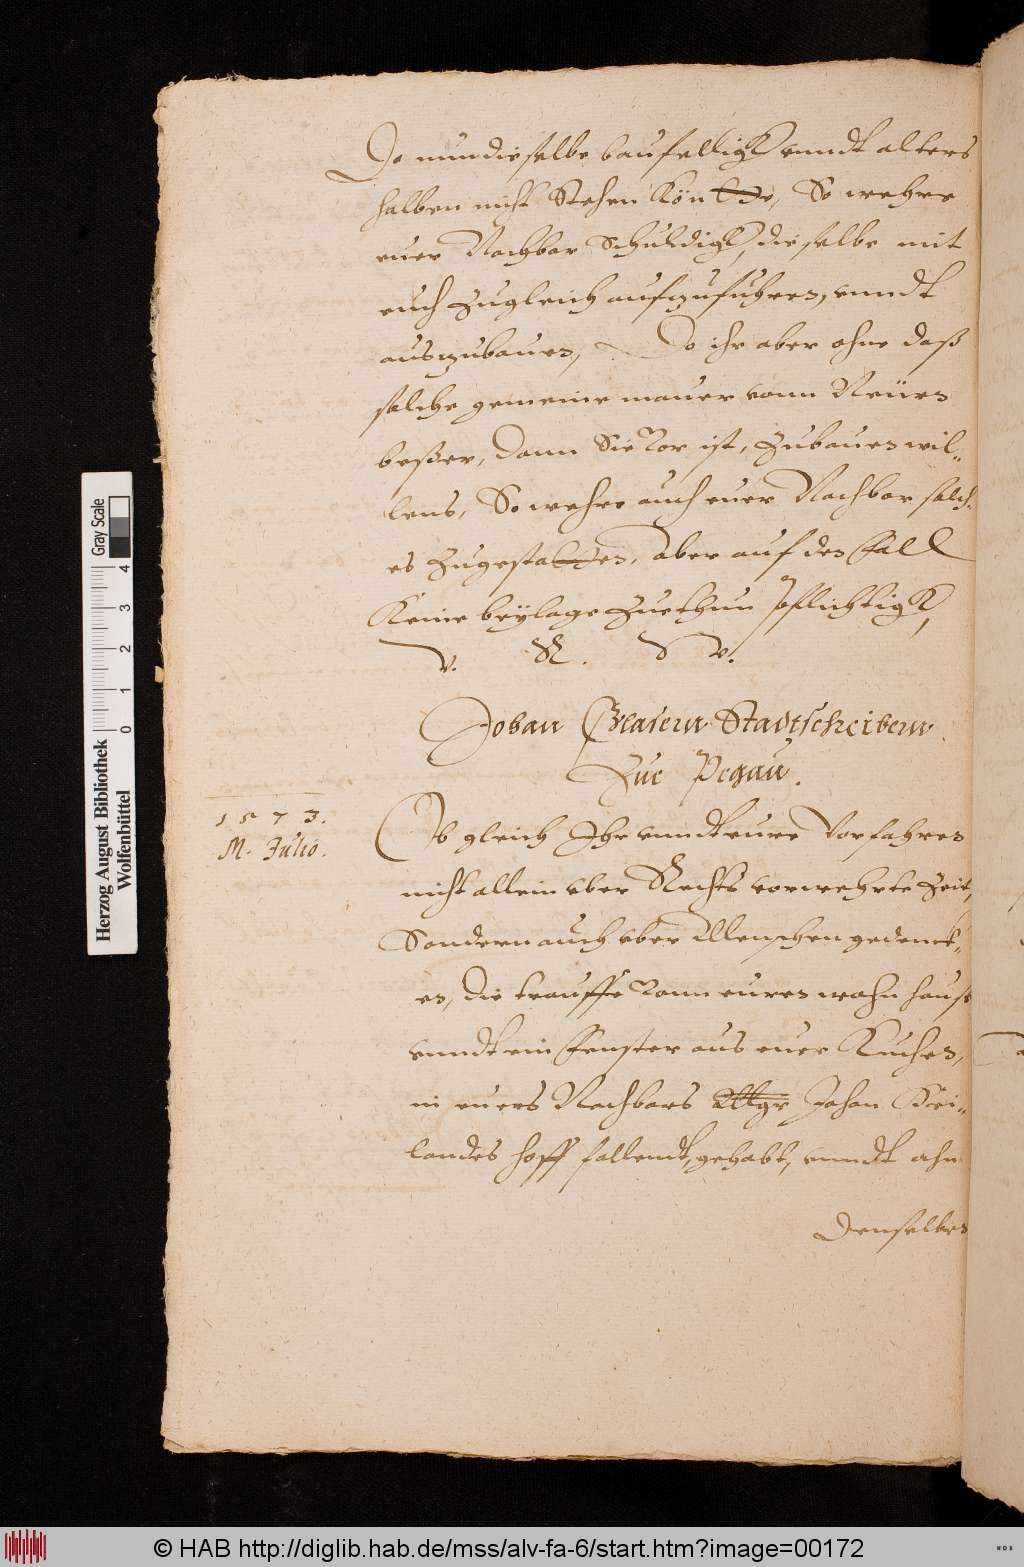 Do nun dieselbe baufelligk vnndt alters
halben nicht Stehen köndte, So wehre
euer Nachbar Schuldigk, dieselbe mit
euch zugleich aufzufuhren, vnndt
auszubauen, Do ihr aber ohne daß
solche gemeine mauer vonn Neües
beßer, dann Sie vor ist, zubauen wil-
lens, So wehre auch euer Nachbar solch-
es zugestadten, aber auf den Fall
Keine beÿlage zuethun pflichtigk,
V. R. W.
Johan Glasern Stadtschreibern
Zue Pegau.
1573.
M. Julio.
Ob gleich Ihr vnndt eure Vorfahren
nicht allein vber Rechts vorwehrte Zeit,
Sondern auch vber Menschen gedenck-
en, die trauffe vonn euren wohn hause
vnndt ein Fenster aus euer Kuchen,
in euers Nachbars Johan
landes hoff fallendt, gehabt, vnndt ahn
Denselben
Herzog August Bibliothek
Wolfenbüttel
0 1 2 3 4
Gray Scale
© HAB http://diglib.hab.de/mss/alv-fa-6/start.htm?image=00172